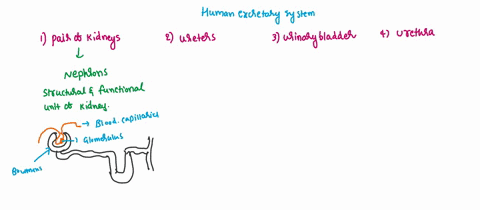 Human excretory system
1) Pair of kidneys
2) ureters
3) urinary bladder
4) urethra
Nephrons
structural & functional
unit of kidney.
Blood capillaries
Glomerulus